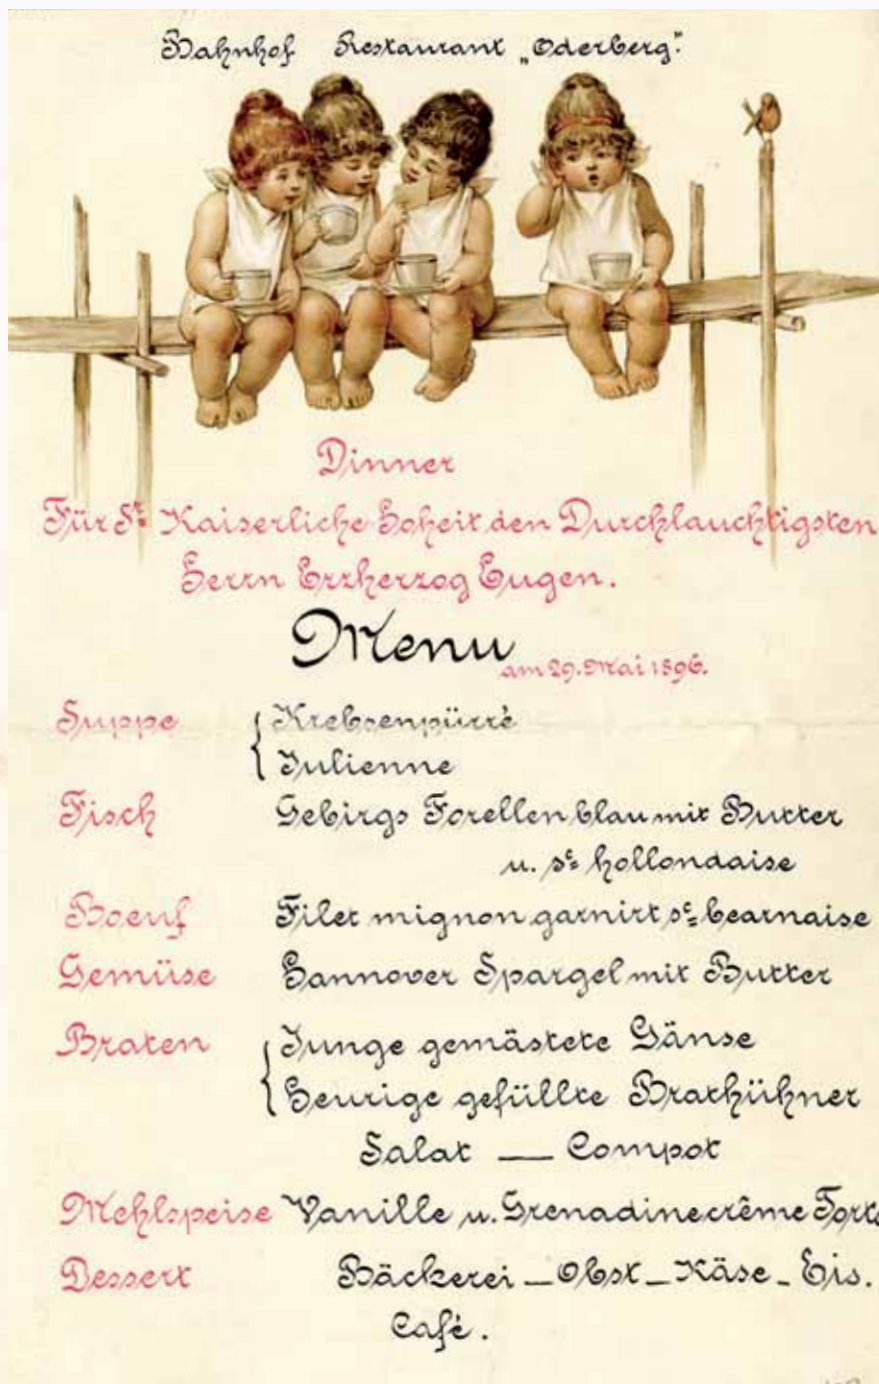 Bahnhof Restaurant „Oderberg.“
Dinner
Für Sr. Kaiserliche Hoheit den Durchlauchtigsten
Herrn Erzherzog Eugen.
Menu
am 29. Mai 1896.
Suppe { Krebsenpürré
Julienne
Fisch Gebirgs Forellen blau mit Butter
u. sc hollondaise
Boeuf Filet mignon garnirt sc bearnaise
Gemüse Hannover Spargel mit Butter
Braten { Junge gemästete Gänse
Heurige gefüllte Brathühner
Salat — Compot
Mehlspeise Vanille u. Grenadinecrême Torte
Dessert Bäckerei — Obst — Käse - Eis.
Café.